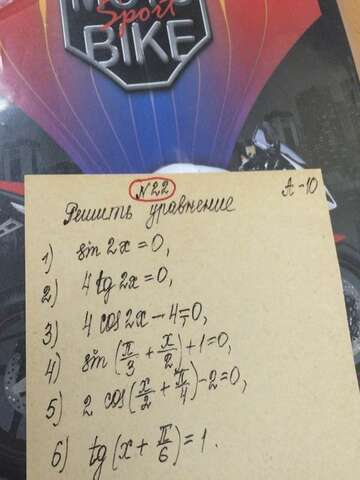 Sport
BIKE
N22
A-10
Решить уравнение
1) sin 2x = 0,
2) 4 tg 2x = 0,
3) 4 cos 2x - 4 = 0,
4) sin (π/3 + x/2) + 1 = 0,
5) 2 cos (x/2 + π/4) - 2 = 0,
6) tg (x + π/6) = 1.